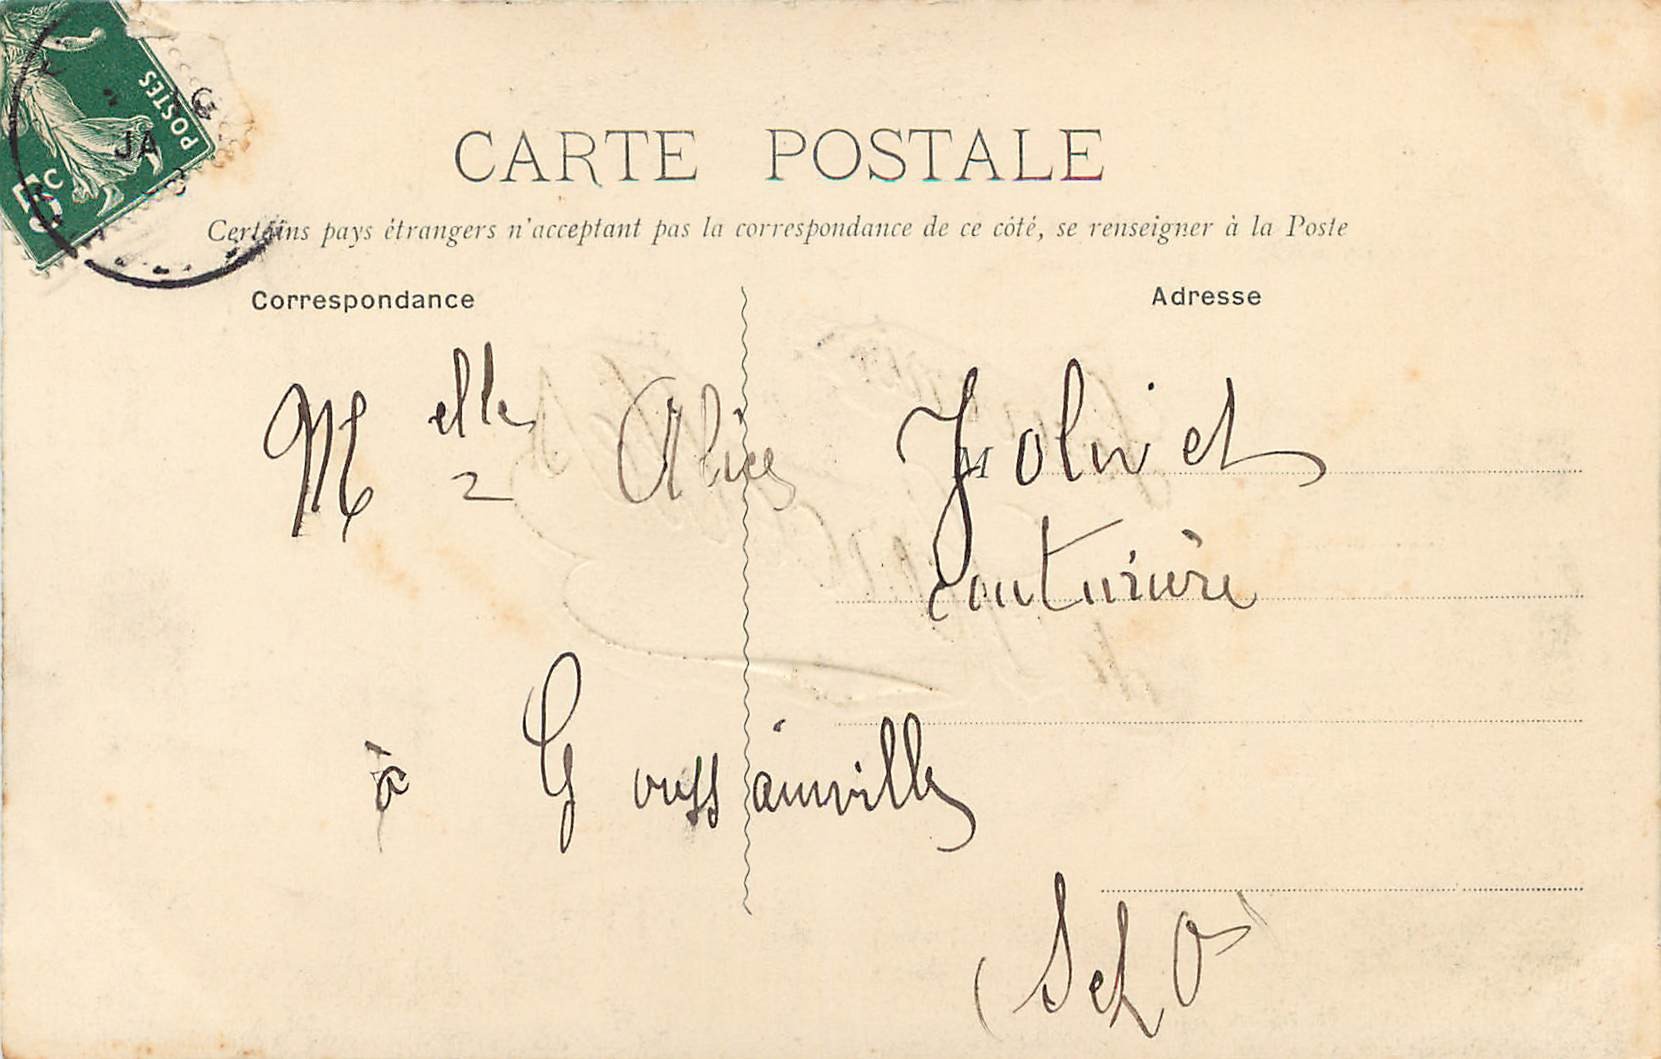 POSTES
5c
JA
CARTE POSTALE
Certains pays étrangers n'acceptant pas la correspondance de ce côté, se renseigner à la Poste
Correspondance
Adresse
Melle Alice Jolivet
M
couturière
à Goussainville
(S et O)